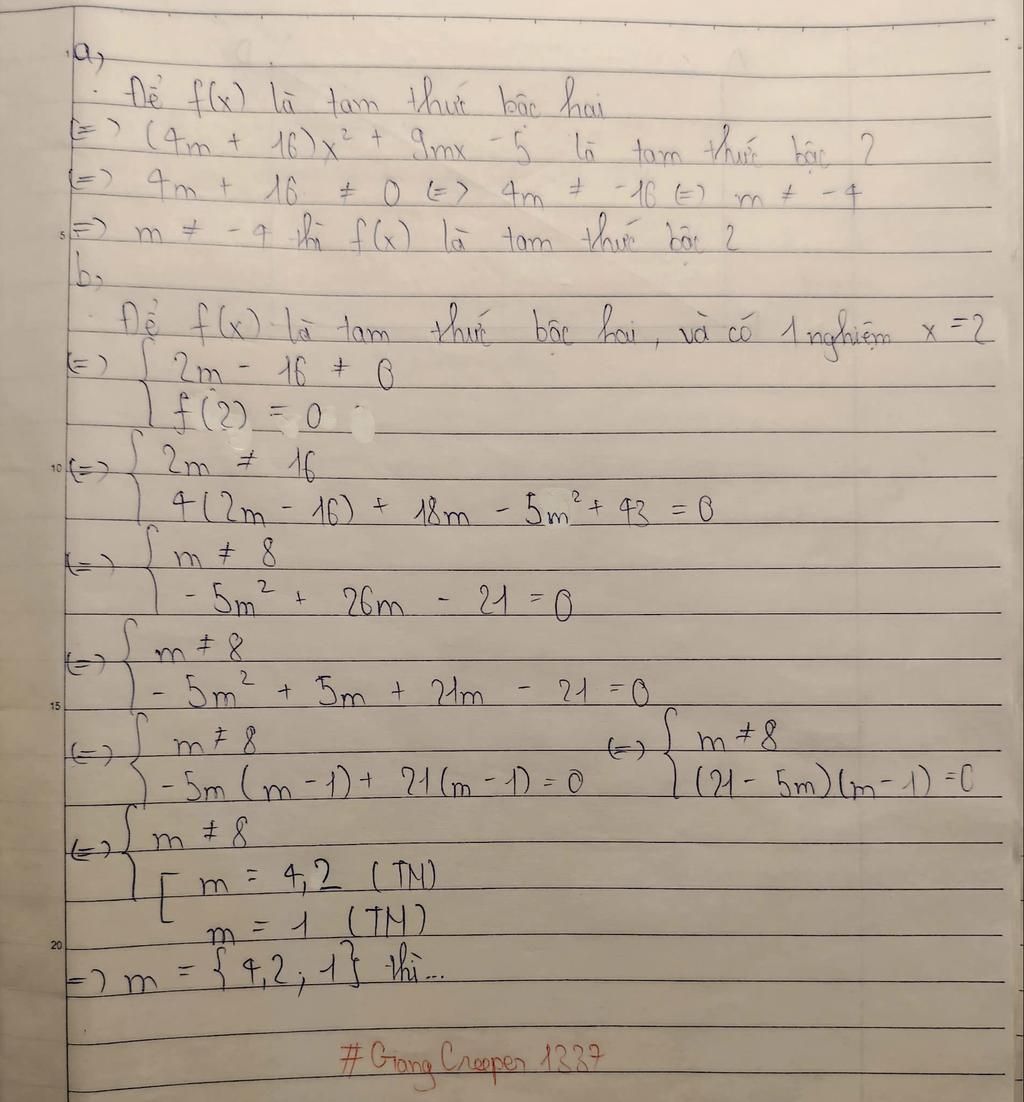 a,
. Để f(x) là tam thức bậc hai
(=) (4m + 16)x² + 9mx - 5 là tam thức bậc 2
(=) 4m + 16 ≠ 0 (=) 4m ≠ -16 (=) m ≠ -4
5 =) m ≠ -4 thì f(x) là tam thức bậc 2
b,
. Để f(x) là tam thức bậc hai, và có 1 nghiệm x = 2
(=) { 2m - 16 ≠ 0
f(2) = 0
10 (=) { 2m ≠ 16
4(2m - 16) + 18m - 5m² + 43 = 0
(=) { m ≠ 8
- 5m² + 26m - 21 = 0
(=) { m ≠ 8
15 - 5m² + 5m + 21m - 21 = 0
(=) { m ≠ 8 (=) { m ≠ 8
-5m(m - 1) + 21(m - 1) = 0 (21 - 5m)(m - 1) = 0
(=) { m ≠ 8
[ m = 4,2 (TM)
m = 1 (TM)
20 =) m = {4,2 ; 1} thì...
#Giang Creeper 1337